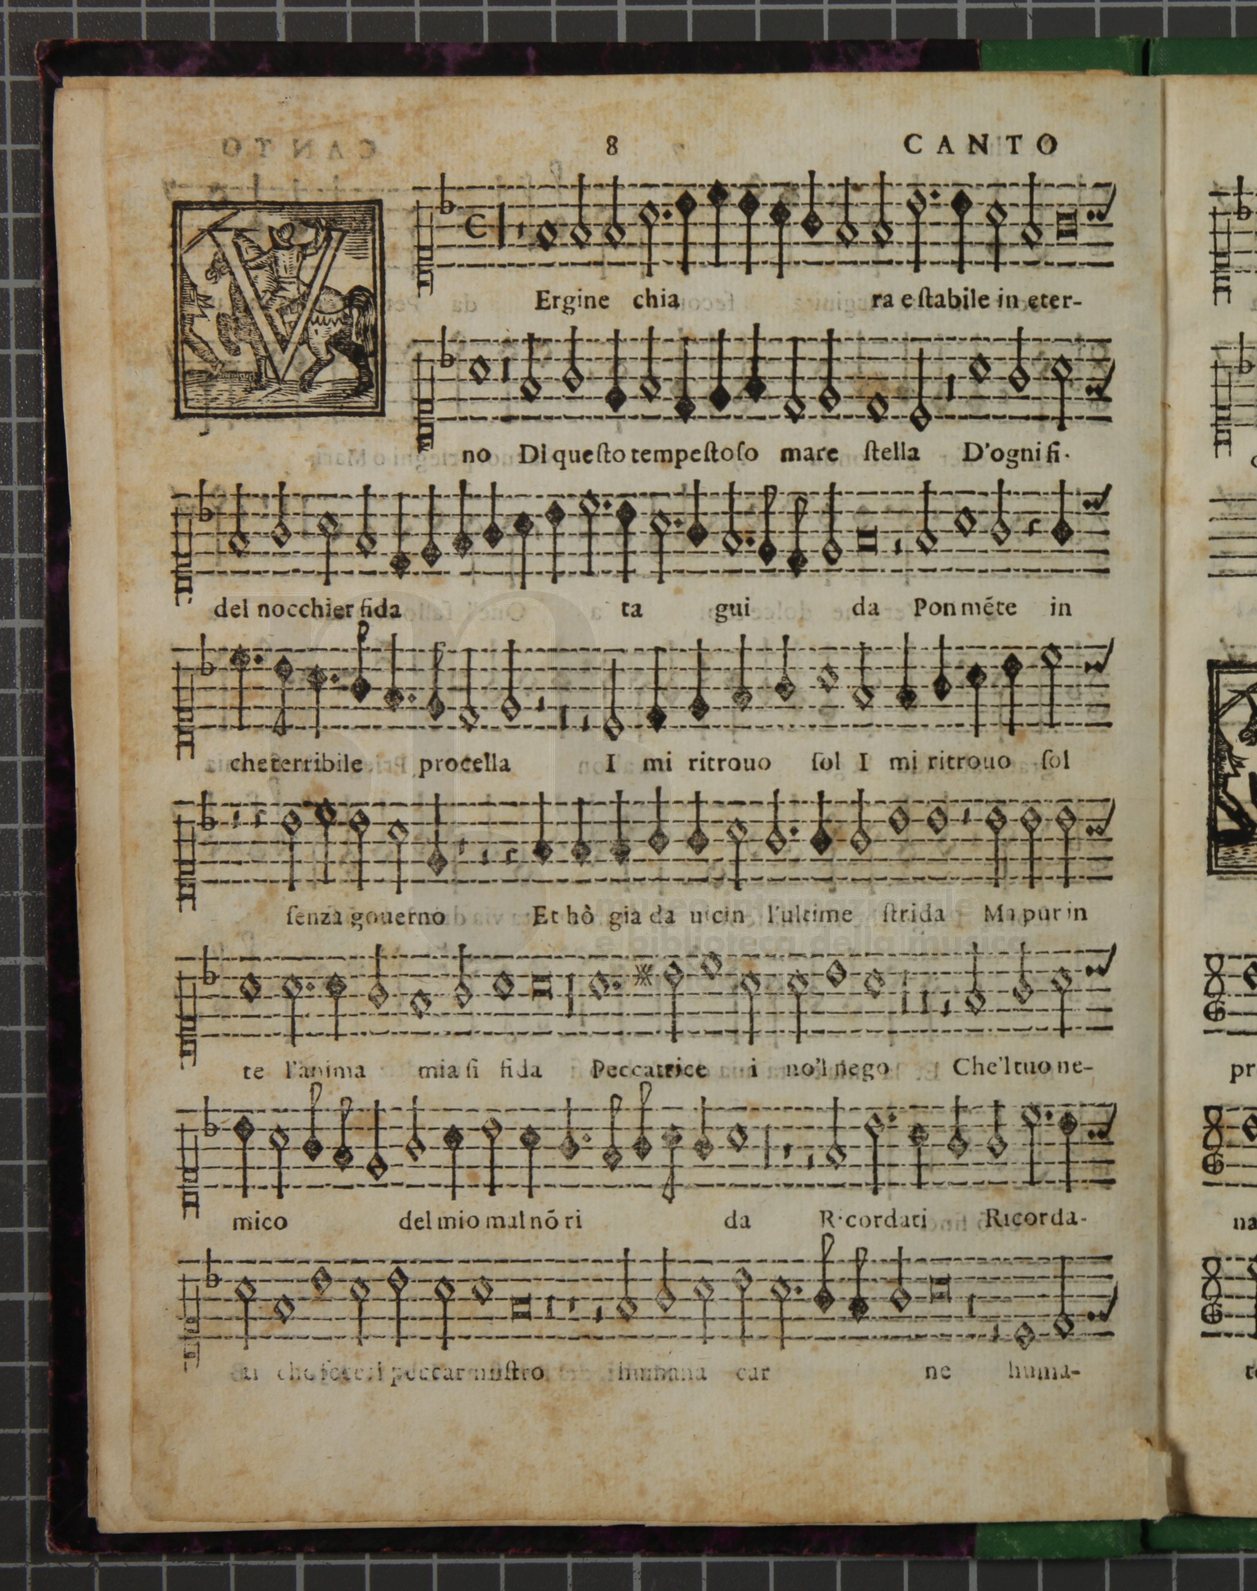 8 CANTO
VErgine chia ra e stabile in eter-
no Di questo tempestoso mare stella D'ogni fi-
del nocchier fida ta gui da Pon mẽte in
che terribile procella I mi ritrouo sol I mi ritrouo sol
senza gouerno Et hò gia da uicin l'ultime strida Ma pur in
te l'anima mia si fida Peccatrice i no'l nego Che'l tuo ne-
mico del mio mal nõ ri da Ricordati Ricorda-
ti che fece il peccar nostro humana car ne huma-